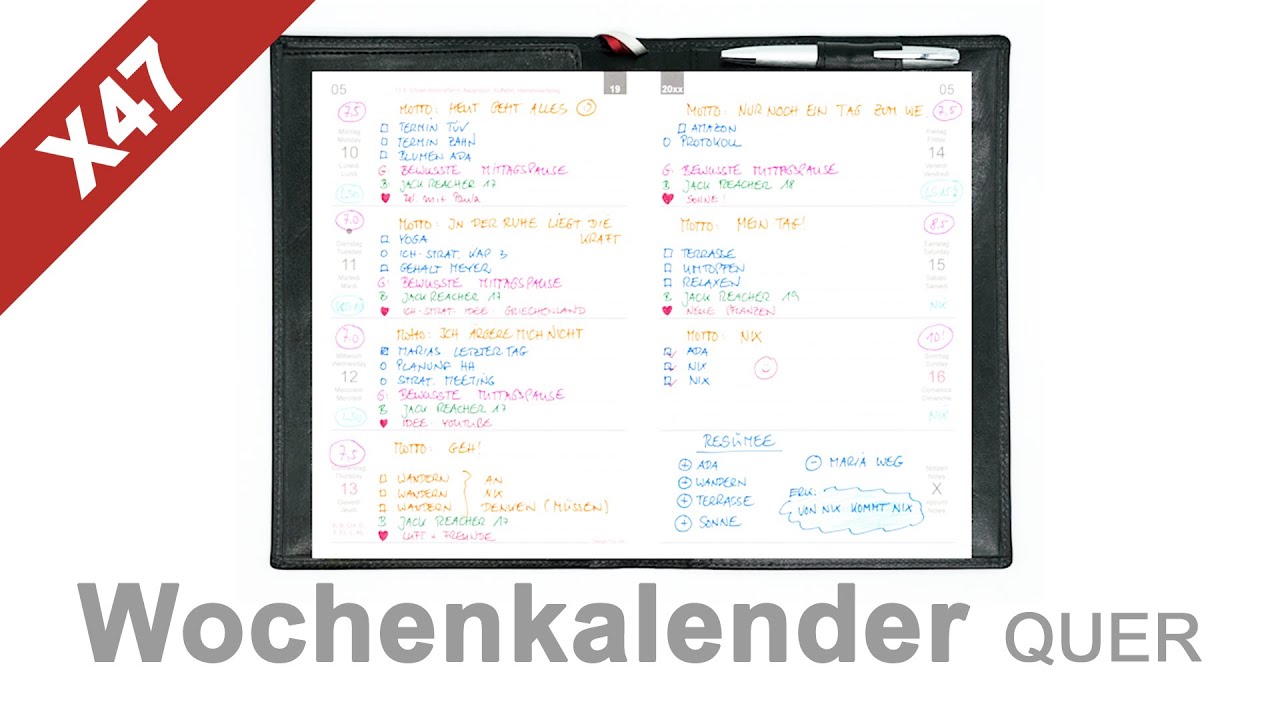 X47
05
19
7,5
MOTTO: HEUT GEHT ALLES
Montag
Monday
10
Lunedì
Lundi
TERMIN TÜV
TERMIN ZAHN
BLUMEN ADA
G: BEWUSSTE MITTAGSPAUSE
B JACK REACHER 17
♥ Tel. mit Paula
7.0
MOTTO: IN DER RUHE LIEGT DIE
KRAFT
Dienstag
Tuesday
11
Martedì
Mardi
YOGA
ICH-STRAT. KAP 3
GEHALT MEYER
G: BEWUSSTE MITTAGSPAUSE
B JACK REACHER 17
♥ ICH-STRAT. IDEE: GRIECHENLAND
7.0
MOTTO: ICH ÄRGERE MICH NICHT
Mittwoch
Wednesday
12
Mercoledì
Mercredi
MARIAS LETZTER TAG
PLANUNG HH
STRAT. MEETING
G: BEWUSSTE MITTAGSPAUSE
B JACK REACHER 17
♥ IDEE: YOUTUBE
7,5
MOTTO: GEH!
Thursday
13
Giovedì
Jeudi
WANDERN AN
WANDERN NIX
WANDERN DENKEN (MÜSSEN)
B JACK REACHER 17
♥ LUFT + FREUNDE
20xx
05
MOTTO: NUR NOCH EIN TAG ZUM WE
7,5
Freitag
Friday
14
Venerdì
Vendredi
AMAZON
PROTOKOLL
G: BEWUSSTE MITTAGSPAUSE
B JACK REACHER 18
♥ SONNE!
MOTTO: MEIN TAG!
8.5
Samstag
Saturday
15
Sabato
Samedi
NIX
TERRASSE
UMTOPFEN
RELAXEN
B JACK REACHER 19
♥ NEUE PFLANZEN
MOTTO: NIX
10!
Sonntag
Sunday
16
Domenica
Dimanche
NIX
ADA
NIX
NIX
RESÜMEE
+ ADA
+ WANDERN
+ TERRASSE
+ SONNE
- MARIA WEG
ERK:
VON NIX KOMMT NIX
Notizen
Notes
X
Notes
Wochenkalender QUER